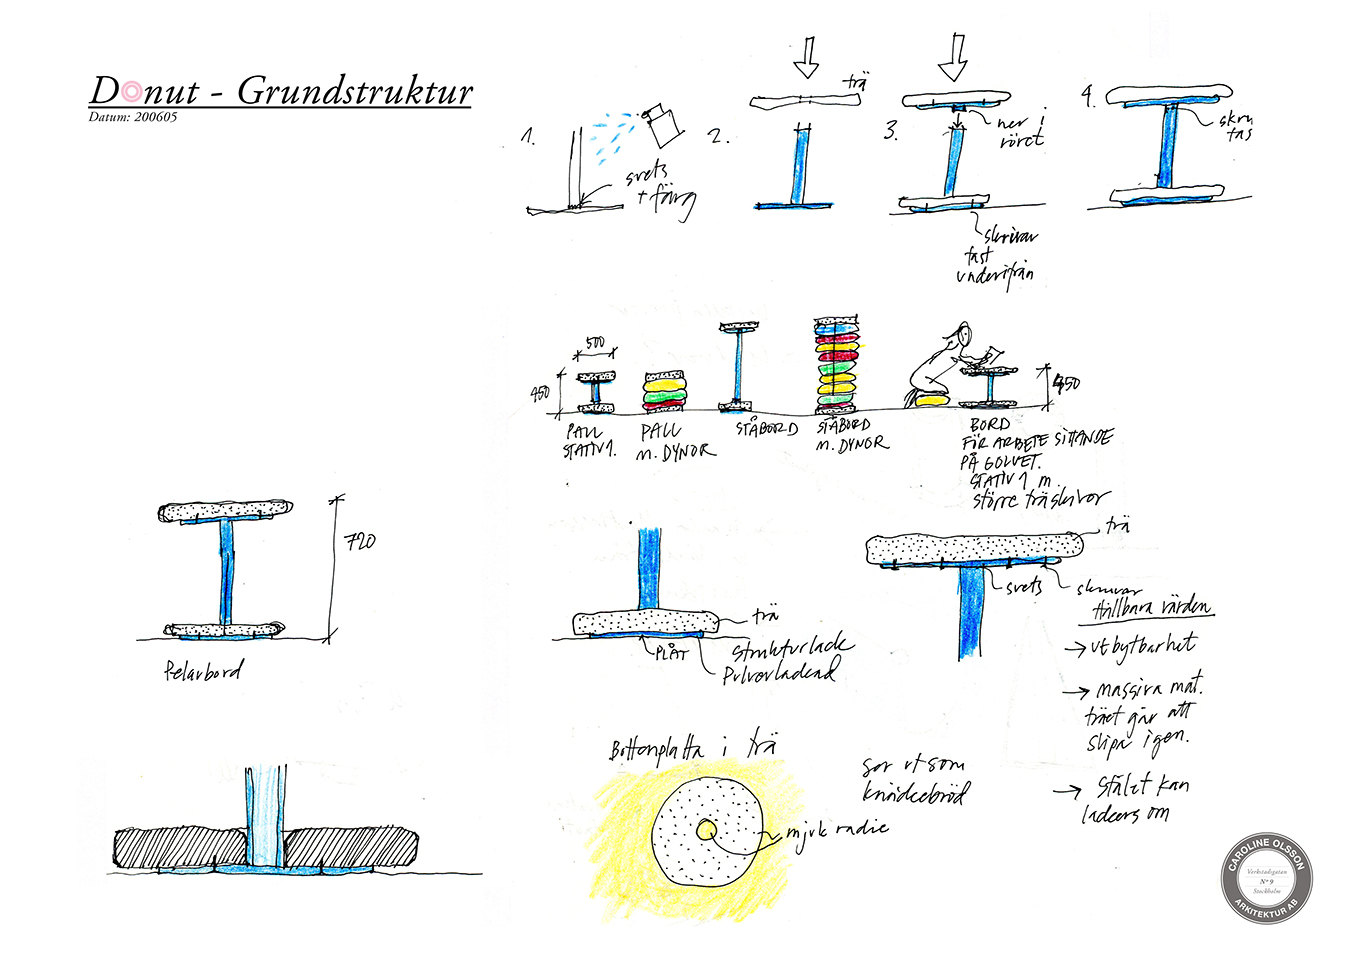 Donut - Grundstruktur
Datum: 200605
1.
svets
+ färg
2.
trä
3.
ner i
röret
skruvar
fast
underifrån
4.
skru
fas
500
450
PALL
STATIV 1.
PALL
M. DYNOR
STÅBORD
STÅBORD
M. DYNOR
BORD
FÖR ARBETE SITTANDE
PÅ GOLVET.
STATIV 1 m.
större träskivor
350
720
Pelarbord
trä
PLÅT
Strukturlack
Pulverlackad
trä
svets
skruvar
Hållbara värden
→ utbytbarhet
→ massiva mat.
träet går att
slipa igen.
→ Stålet kan
lackers om
Bottenplatta i trä
mjuk radie
ser ut som
knäckebröd
CAROLINE OLSSON
Verkstadsgatan
Nº 9
Stockholm
ARKITEKTUR AB